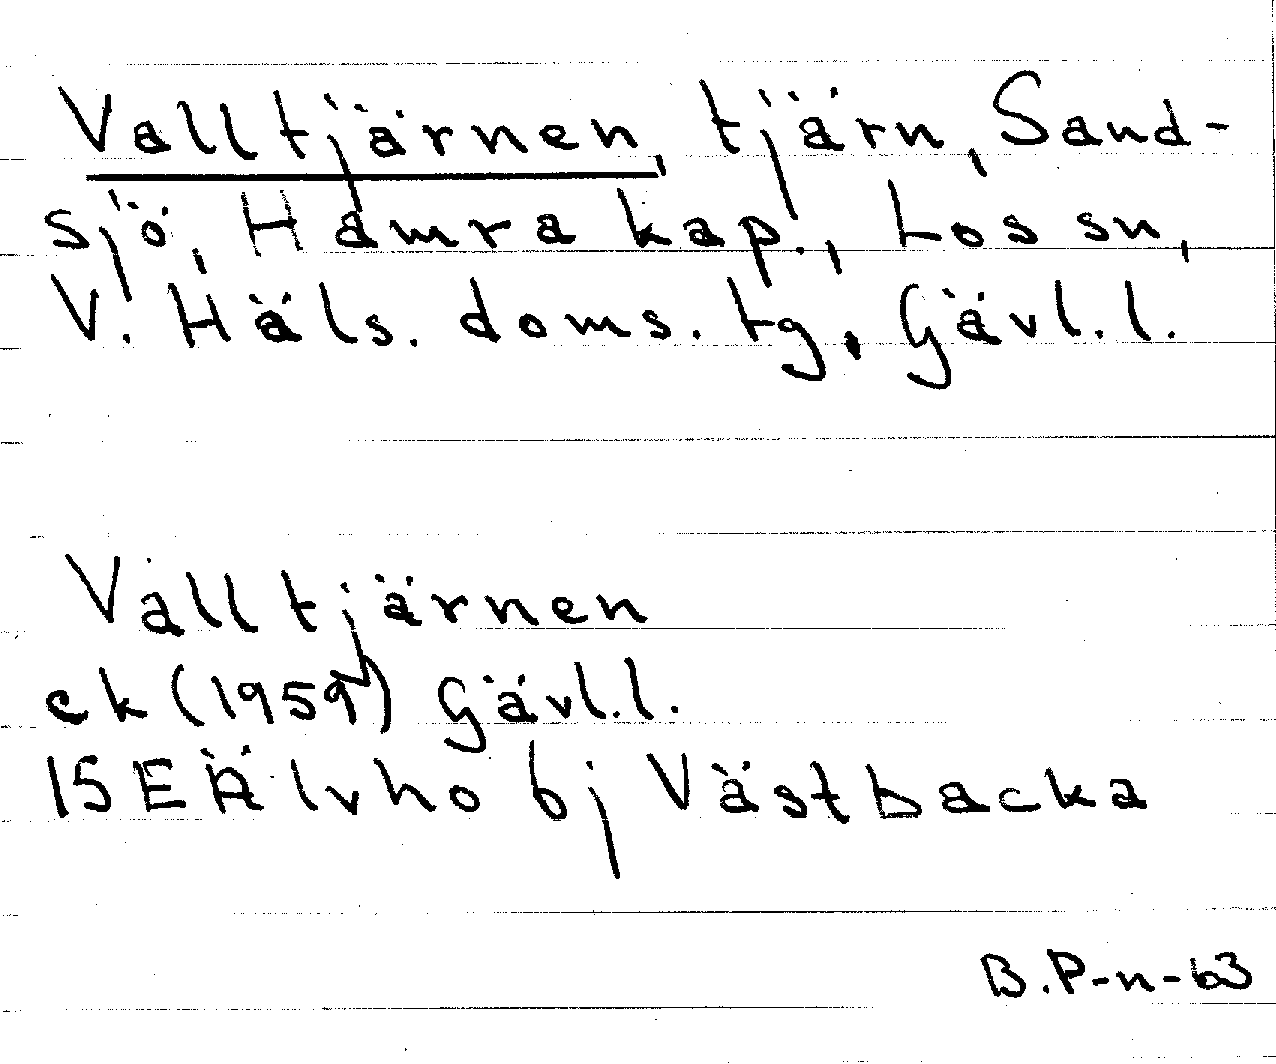 Valltjärnen, tjärn, Sand-
sjö, Hamra kap., Los sn,
V. Häls. doms. tg, Gävl.l.
Valltjärnen
ek (1959) Gävl.l.
15E Älvho 6j Västbacka
B.P-n-63